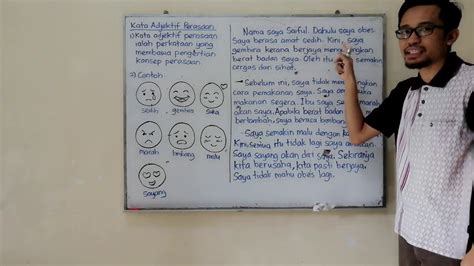 Kata Adjektif Perasaan
1) Kata adjektif perasaan
ialah perkataan yang
membawa pengertian
konsep perasaan.
2) Contoh
sedih gembira suka
marah bimbang malu
sayang
Nama saya Saiful. Dahulu saya obes.
Saya berasa amat sedih. Kini, saya
gembira kerana berjaya
berat badan saya. Oleh itu, semakin
cergas dan sihat.
Sebelum ini, saya tidak
cara pemakanan saya. Saya
makanan segera. Ibu saya
akan saya. Apabila berat badan
bertambah, saya berasa bimbang
Saya semakin malu dengan
Kini, semua itu tidak lagi saya
Saya sayang akan diri saya. Sekiranya
kita berusaha, kita pasti berjaya.
Saya tidak mahu obes lagi.